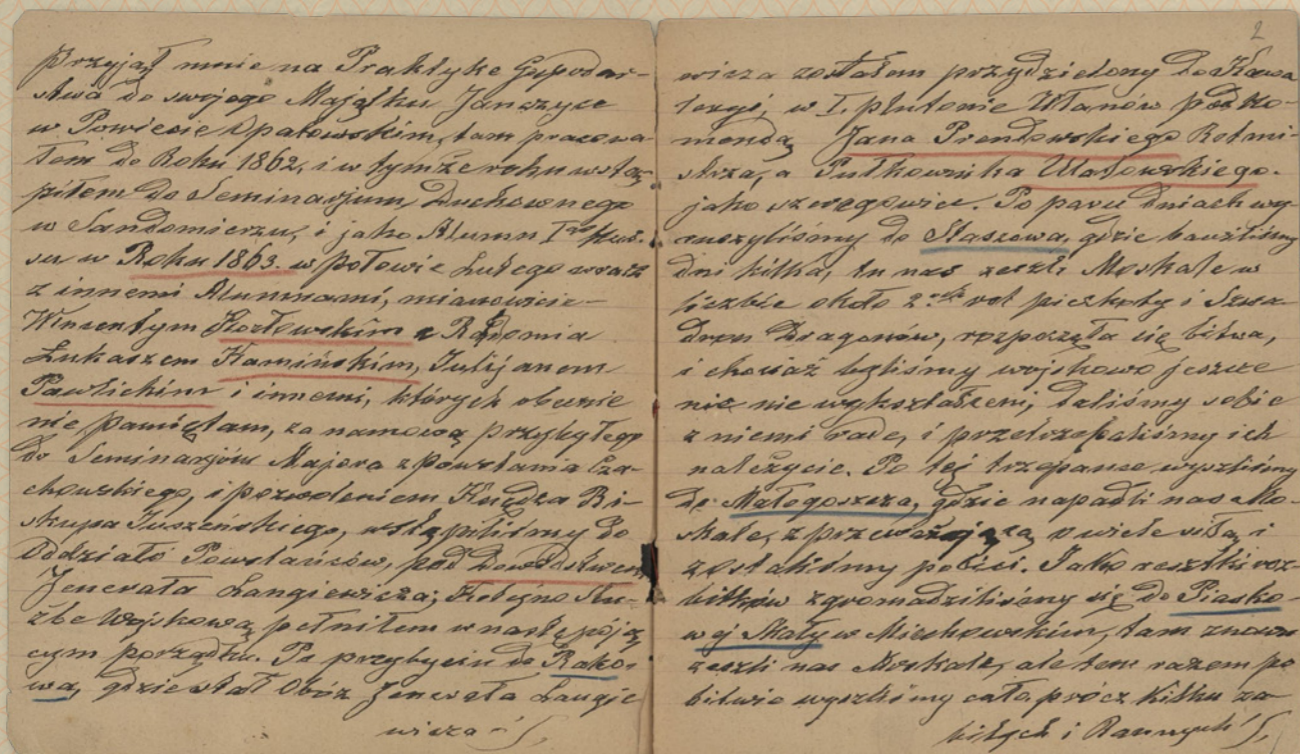 przyjął mnie na Praktykę Gospodar-
stwa do swojego Majątku Janczyce
w Powiecie Opatowskim, tam pracowa-
łem do Roku 1862, i w tymże roku wstą-
piłem do Seminarjum Duchownego
w Sandomierzu, i jako Alumn Igo kur-
su w Roku 1863. w połowie Lutego wraz
z innemi Alumnami, mianowicie-
Wincentym Kozłowskim z Radomia
Łukaszem Kamińskim, Julijanem
Pawlickim i innemi, których obecnie
nie pamiętam, za namową przybyłego
do Seminarjów Majora z powstania Cza-
chowskiego, i pozwoleniem Księdza Bi-
skupa Juszeńskiego, wstąpiliśmy do
Oddziału Powstańców, pod Dowództwem
Jenerała Langiewicza; Kolejno Słu-
żbe Wojskową pełniłem w następują-
cym porządku. Po przybyciu do Rako-
wa, gdzie stał Obóz Jenerała Langie
wicza-
2
wicza zostałem przydzielony do Kawa
leryi, w I. plutonie Ułanów pod ko-
mendą Jana Prendowskiego Rotmi-
strza, a Pułkownika Ułatowskiego.
jako szeregowiec. Po paru dniach wy-
ruszyliśmy do Staszowa, gdzie bawiliśmy
dni kilka, tu nas zeszli Moskale w
liczbie około 2ch rot piechoty i Szwa
dron Dragonów, rozpoczęła się bitwa,
i chociaż byliśmy wojskowo jeszcze
nic nie wykształceni, daliśmy sobie
z niemi radę, i przetrzepaliśmy ich
należycie. Po tej trzepance wyszliśmy
do Małogoszcza, gdzie napadli nas Mo-
skale, z przeważającą o wiele siłą i
zostaliśmy pobici. Jako resztki roz-
bitków zgromadziliśmy się do Piasko-
wej Skały w Miechowskim, tam znowu
zeszli nas Moskale, ale tem razem po
bitwie wyszliśmy cało prócz kilku za
bitych i Rannych